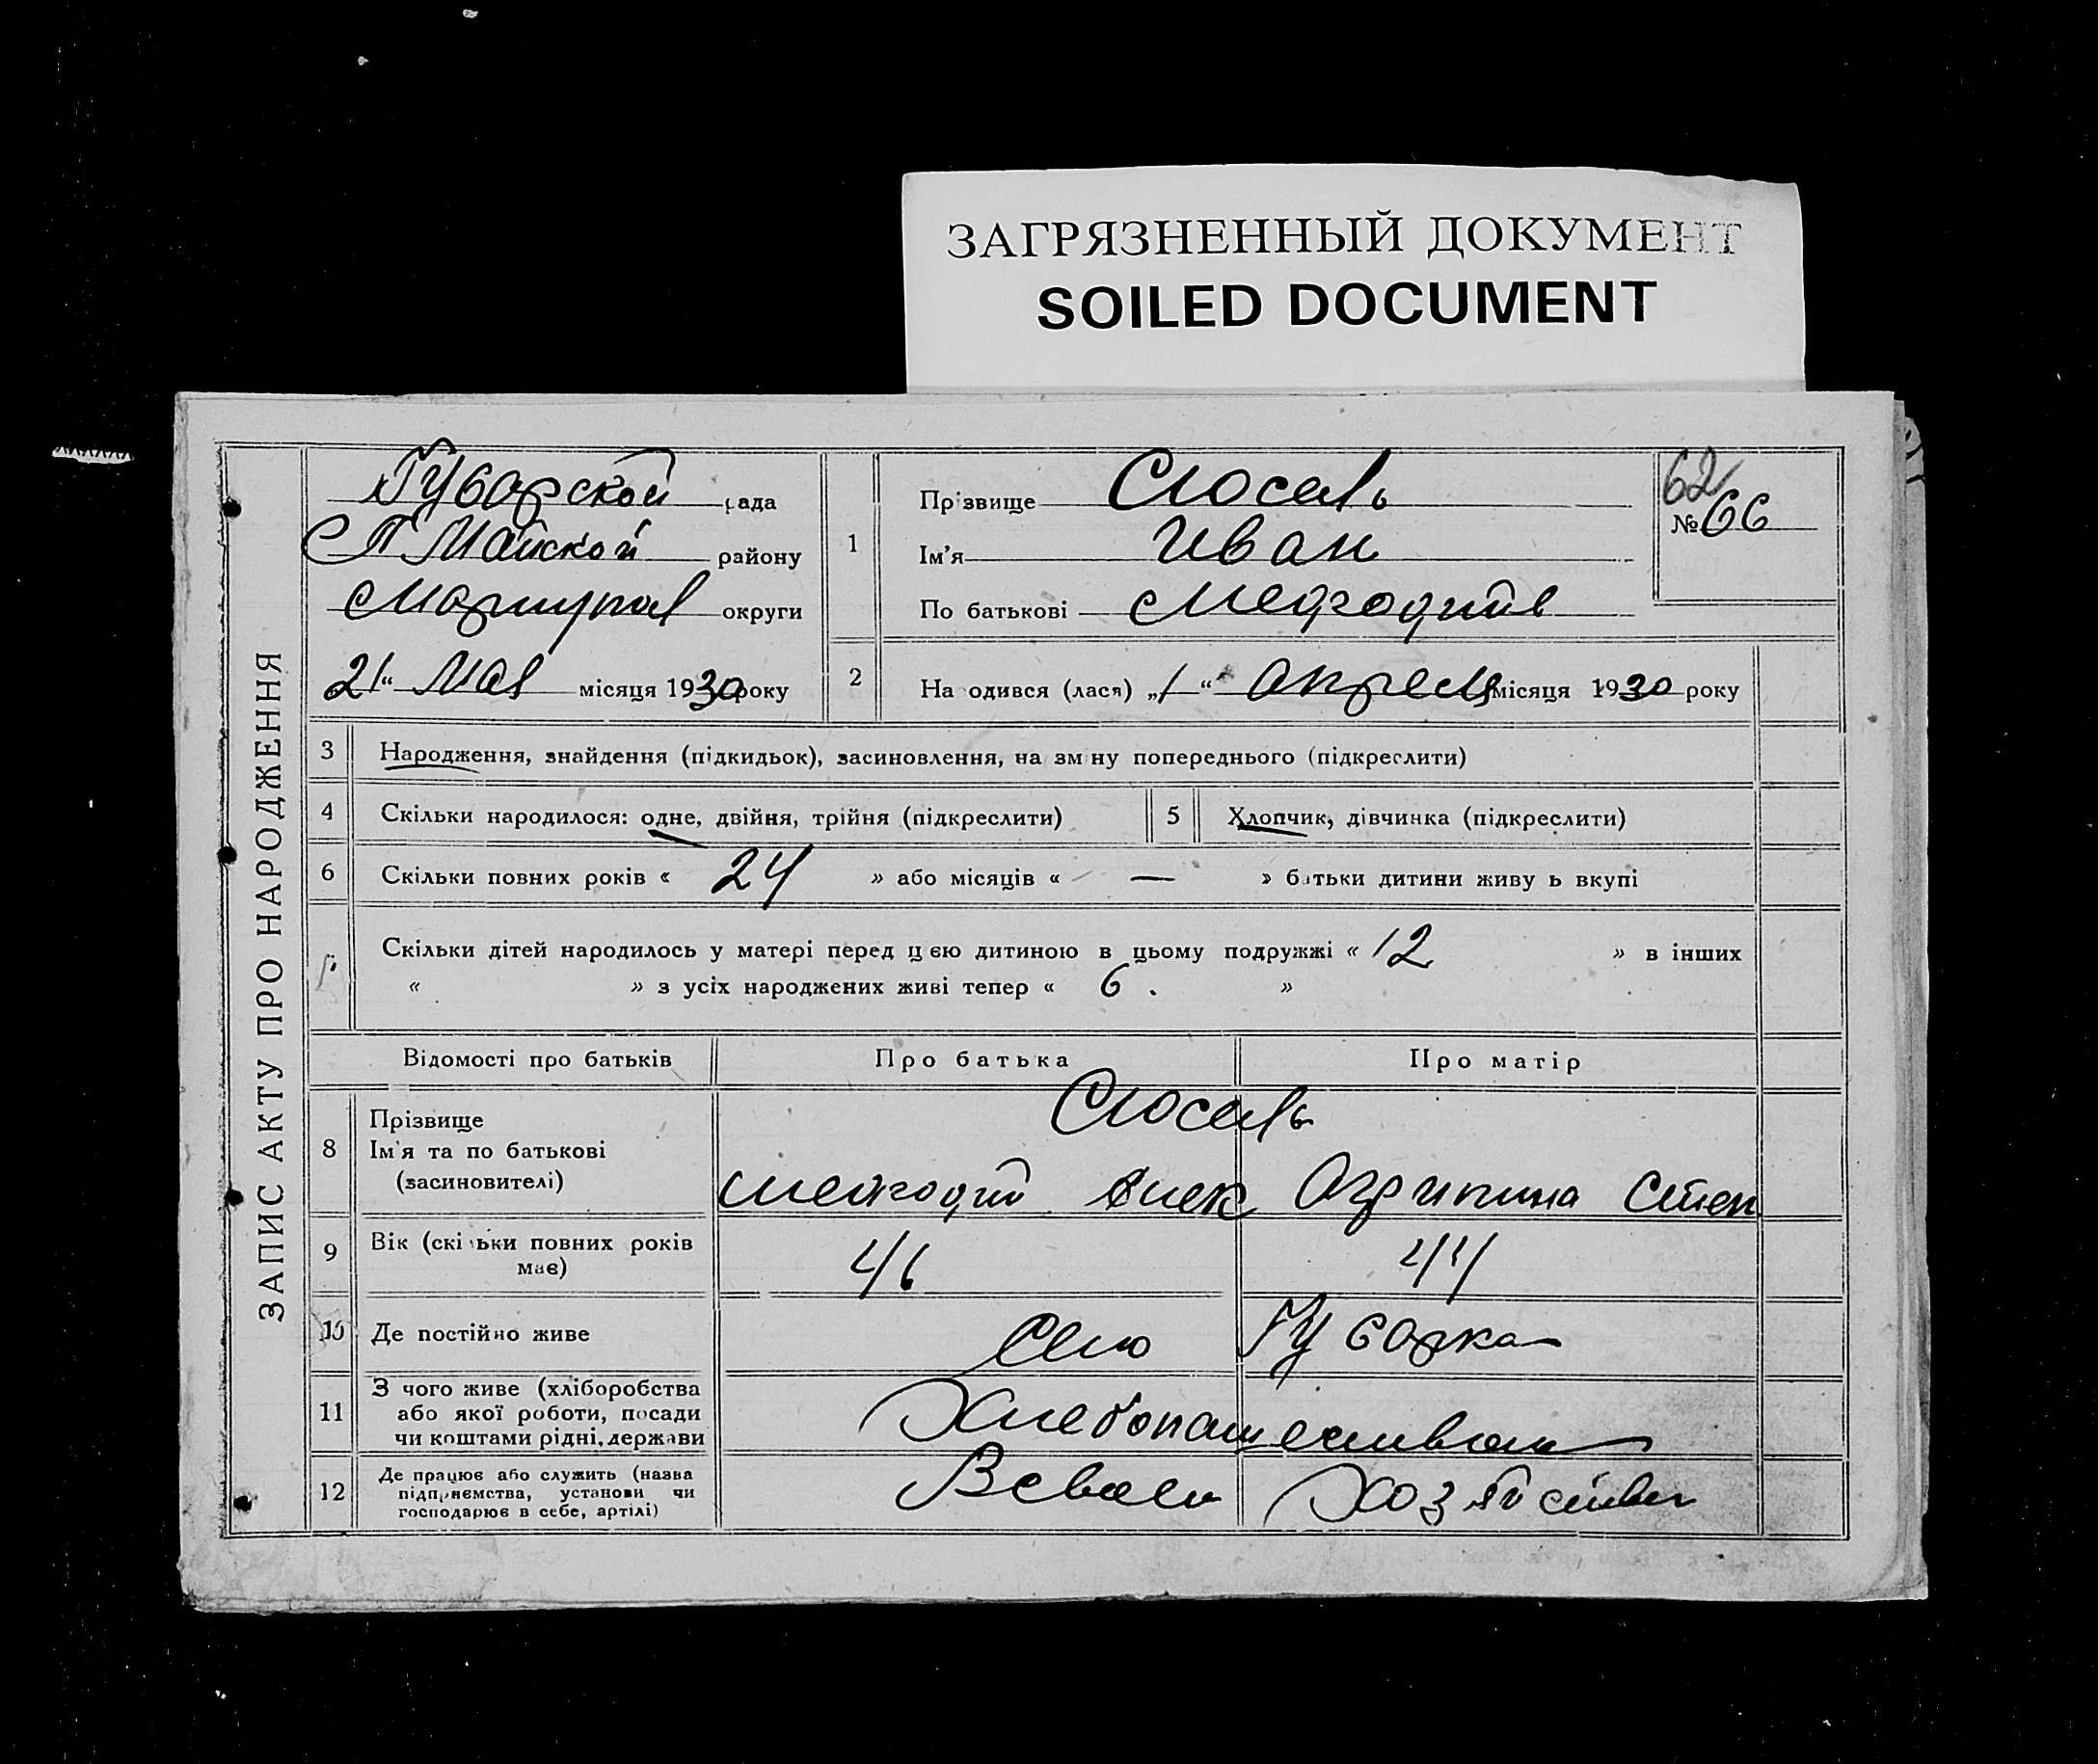 ЗАГРЯЗНЕННЫЙ ДОКУМЕНТ
SOILED DOCUMENT
ЗАПИС АКТУ ПРО НАРОДЖЕННЯ
Гусарской рада
С П Майской району
Мариупол округи
21 " Мая місяця 1930 року
62
№ 66
1
Прізвище Слюсарь
Ім'я Иван
По батькові Мефодиев
2 На одився (лася) „1 “ Апреля місяця 1930 року
3 Народження, знайдення (підкидьок), засиновлення, на зм ну попереднього (підкреслити)
4 Скільки народилося: одне, двійня, трійня (підкреслити) 5 Хлопчик, дівчинка (підкреслити)
6 Скільки повних років « 24 » або місяців « — » батьки дитини живу ь вкупі
Скільки дітей народилось у матері перед цією дитиною в цьому подружжі « 12 » в інших
« » з усіх народжених живі тепер « 6 . »
Відомості про батьків Про батька Про матір
8 Прізвище
Ім'я та по батькові
(засиновителі)
Слюсарь
Мефодий Алек Агрипина Степ
9 Вік (скільки повних років
має)
46 44
10 Де постійно живе Село
11 З чого живе (хліборобства
або якої роботи, посади
чи коштами рідні, держави
Хлебопашеством
12 Де працює або служить (назва
підприємства, установи чи
господарює в себе, артілі)
В своем Хозяйстве